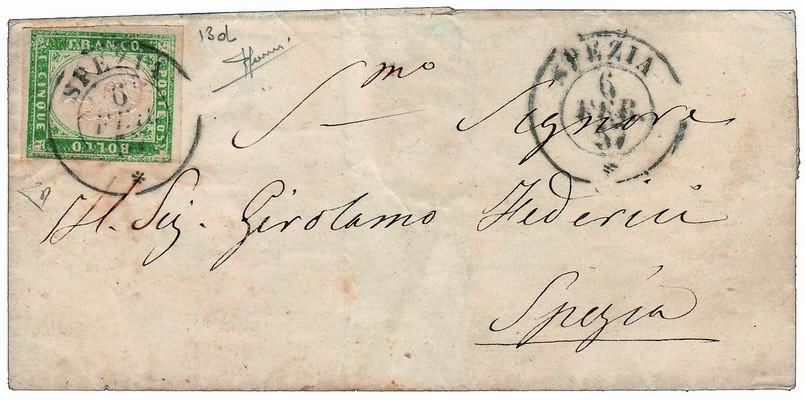 FRANCO
POSTE C.5
C. CINQUE
BOLLO
SPEZIA
6
FEB
13d
SPEZIA
6
FEB
57
*
S.mo Signore
Il Sig. Girolamo Federici
Spezia